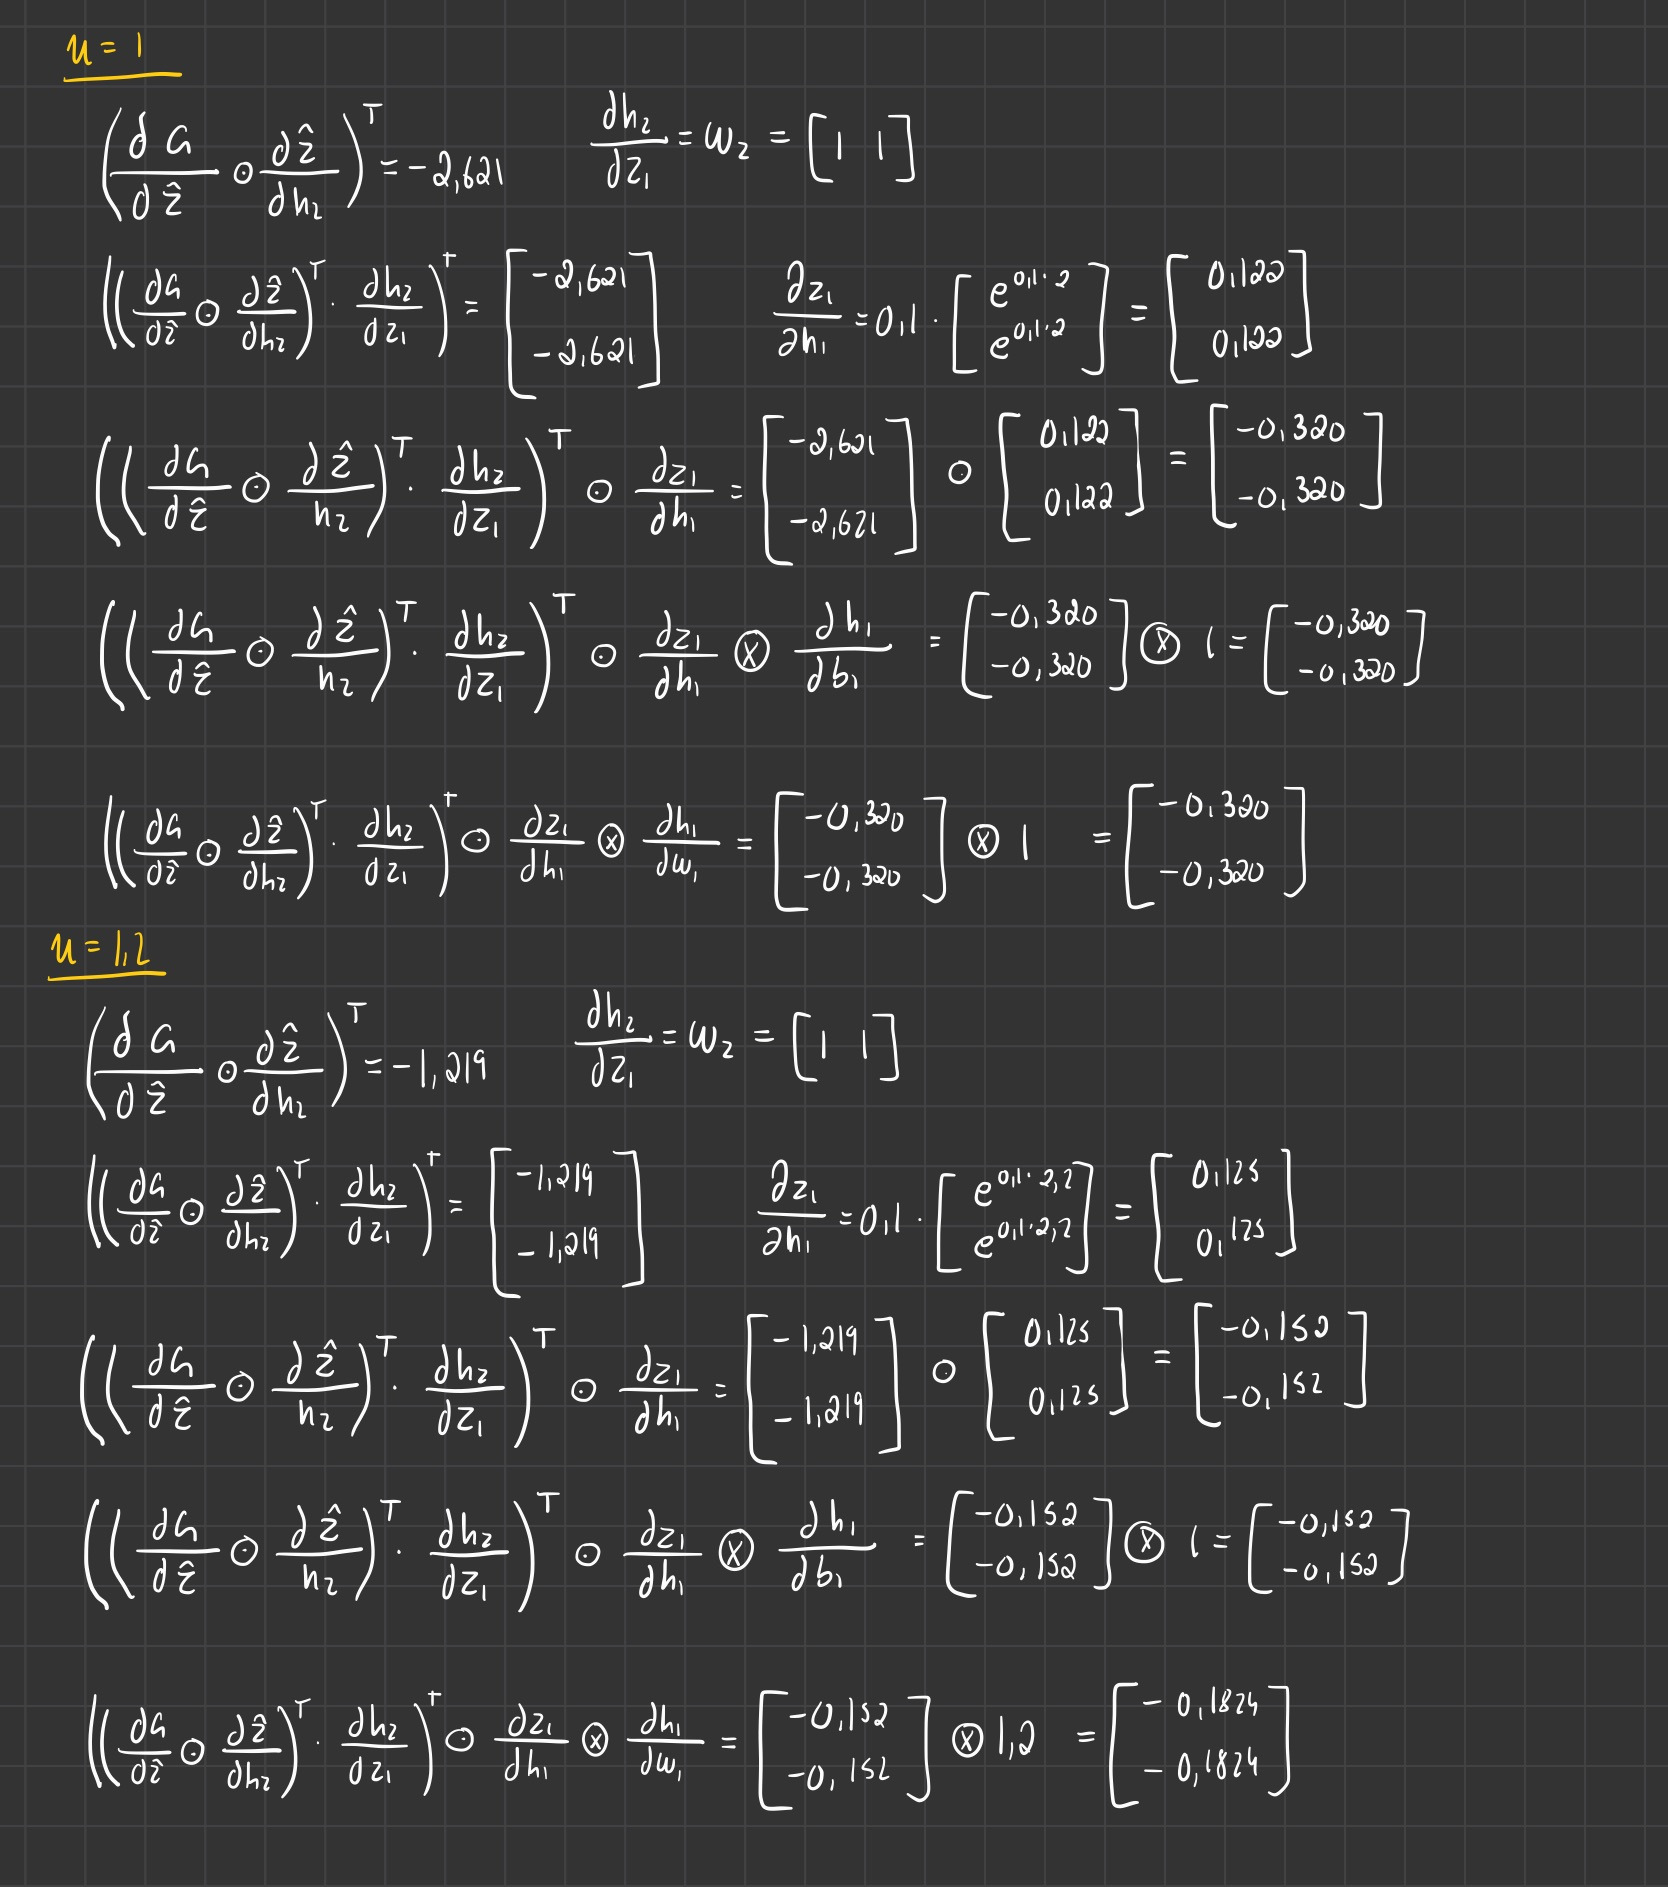 u = 1
(∂G/∂ẑ ⊙ ∂ẑ/∂h₂)ᵀ = -2,621    ∂h₂/∂z₁ = w₂ = [1 1]
((∂G/∂ẑ ⊙ ∂ẑ/∂h₂)ᵀ · ∂h₂/∂z₁)ᵀ = [-2,621; -2,621]    ∂z₁/∂h₁ = 0,1 · [e^(0,1·2); e^(0,1·2)] = [0,122; 0,122]
((∂G/∂ẑ ⊙ ∂ẑ/h₂)ᵀ · ∂h₂/∂z₁)ᵀ ⊙ ∂z₁/∂h₁ = [-2,621; -2,621] ⊙ [0,122; 0,122] = [-0,320; -0,320]
((∂G/∂ẑ ⊙ ∂ẑ/h₂)ᵀ · ∂h₂/∂z₁)ᵀ ⊙ ∂z₁/∂h₁ ⊗ ∂h₁/∂b₁ = [-0,320; -0,320] ⊗ 1 = [-0,320; -0,320]
((∂G/∂ẑ ⊙ ∂ẑ/∂h₂)ᵀ · ∂h₂/∂z₁)ᵀ ⊙ ∂z₁/∂h₁ ⊗ ∂h₁/∂w₁ = [-0,320; -0,320] ⊗ 1 = [-0,320; -0,320]
u = 1,2
(∂G/∂ẑ ⊙ ∂ẑ/∂h₂)ᵀ = -1,219    ∂h₂/∂z₁ = w₂ = [1 1]
((∂G/∂ẑ ⊙ ∂ẑ/∂h₂)ᵀ · ∂h₂/∂z₁)ᵀ = [-1,219; -1,219]    ∂z₁/∂h₁ = 0,1 · [e^(0,1·2,2); e^(0,1·2,2)] = [0,125; 0,125]
((∂G/∂ẑ ⊙ ∂ẑ/h₂)ᵀ · ∂h₂/∂z₁)ᵀ ⊙ ∂z₁/∂h₁ = [-1,219; -1,219] ⊙ [0,125; 0,125] = [-0,152; -0,152]
((∂G/∂ẑ ⊙ ∂ẑ/h₂)ᵀ · ∂h₂/∂z₁)ᵀ ⊙ ∂z₁/∂h₁ ⊗ ∂h₁/∂b₁ = [-0,152; -0,152] ⊗ 1 = [-0,152; -0,152]
((∂G/∂ẑ ⊙ ∂ẑ/∂h₂)ᵀ · ∂h₂/∂z₁)ᵀ ⊙ ∂z₁/∂h₁ ⊗ ∂h₁/∂w₁ = [-0,152; -0,152] ⊗ 1,2 = [-0,1824; -0,1824]